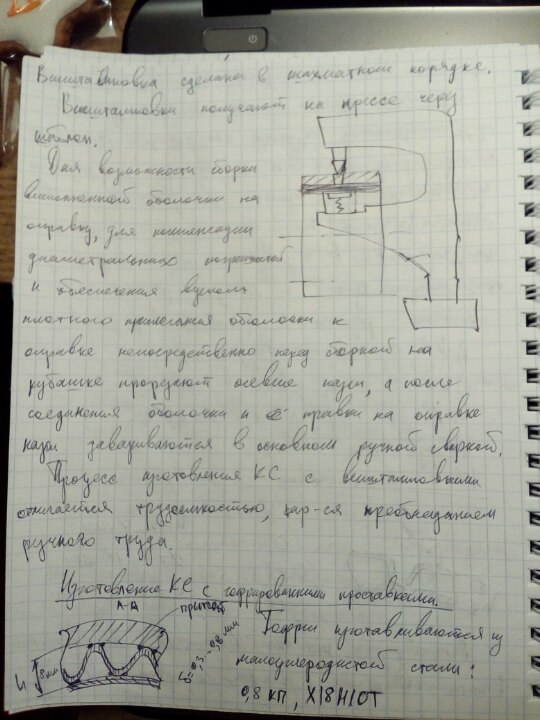 Выштамповка сделана в шахматном порядке.
Выштамповки получают на прессе через
шаблон.
Для возможности сборки
выполненной оболочки на
оправку, для компенсации
диаметральных погрешностей
и обеспечения
плотного прилегания оболочки к
оправке непосредственно перед сборкой на
рубашке прорезают осевые пазы, а после
соединения оболочки и правки на оправке
пазы завариваются в основном ручной сваркой.
Процесс изготовления КС с выштамповками
отличается трудоемкостью, хар-ся преобладанием
ручного труда.
Изготовление КС с гофрированными проставками.
А-А
припой
δ=0,3...0,8 мм
Гофры изготавливаются из
малоуглеродистой стали:
0,8 КП, Х18Н10Т